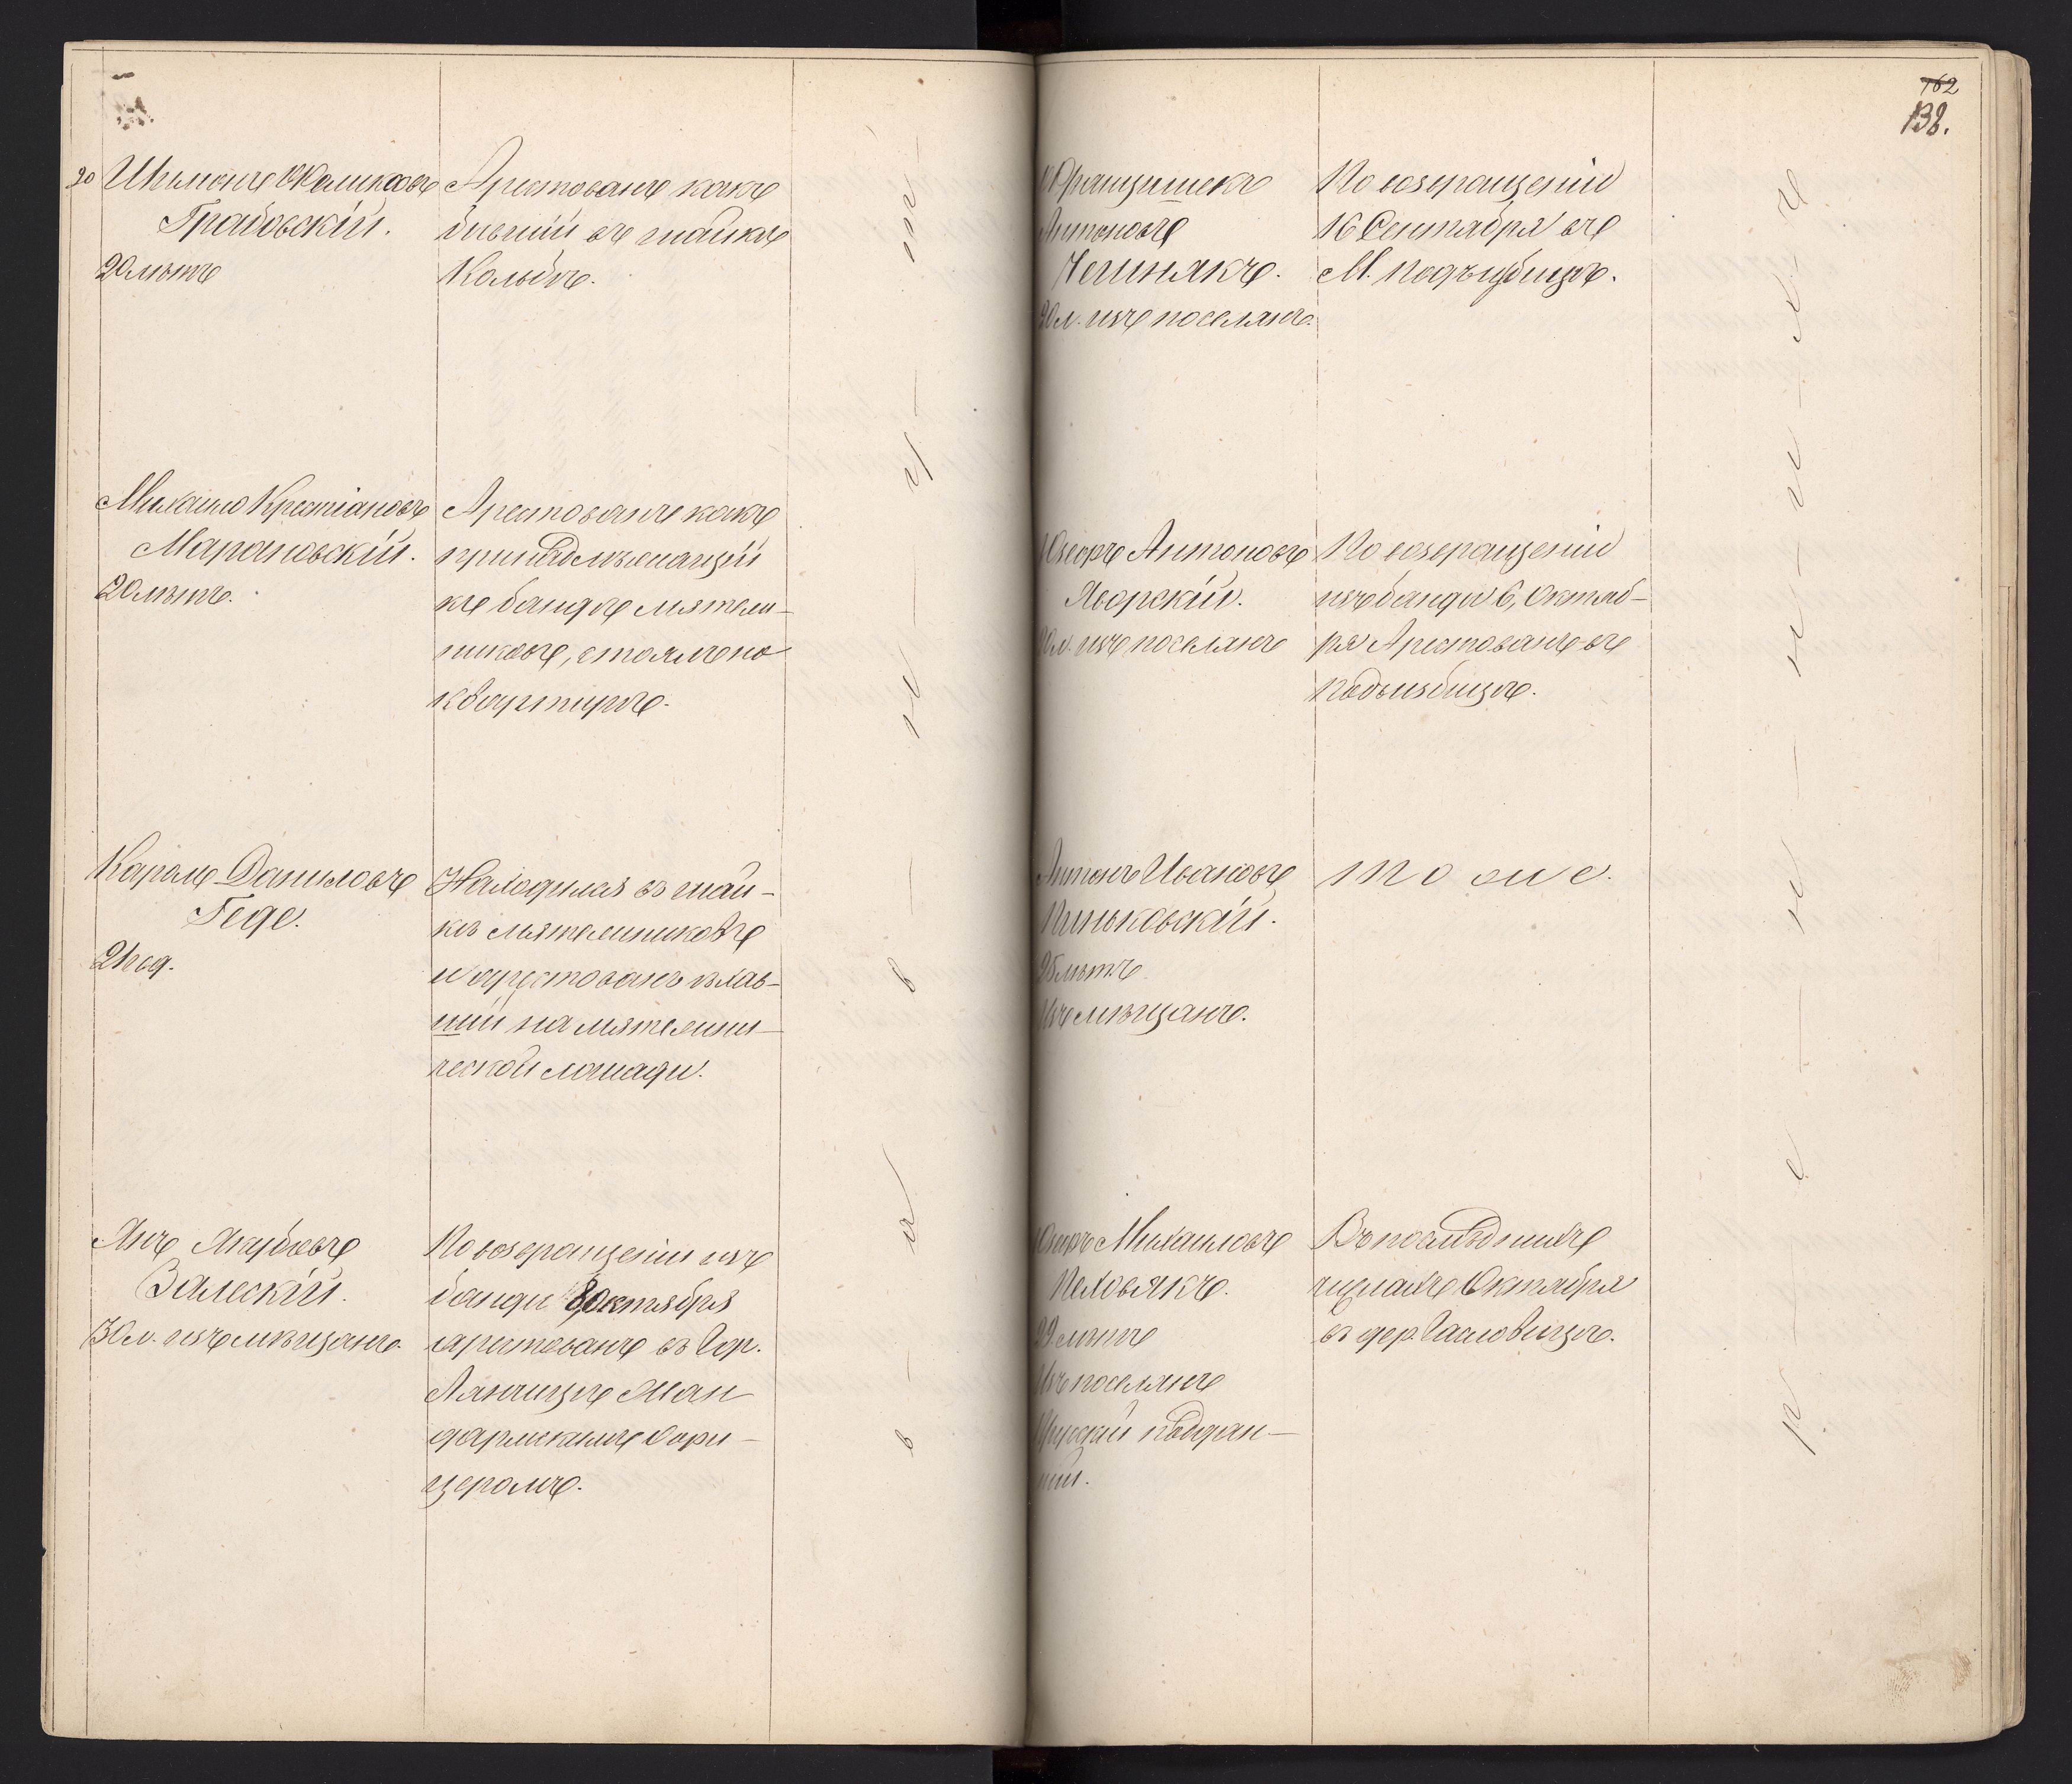 20 Шимонъ
Грабовскій.
20 лѣтъ
Арестованъ какъ
бывшій въ шайкѣ
Кольбе.
Михаилъ Крестіановъ
Марановскій.
20 лѣтъ.
Арестованъ какъ
принадлѣжащій
къ бандѣ мятеж-
никовъ, стоялъ на
квартирѣ.
Кароль Даниловъ
Геде.
21 год.
Находился въ шай-
кѣ мятежниковъ
и арестованъ ѣхав-
шій на мятежни-
ческой лошади.
Янъ Якубовъ
Залескій.
30 л. изъ мѣщанъ.
По возвращеніи изъ
банды 8, Октября
арестованъ въ Гор.
Лянчицѣ Жан
дармскимъ Офи-
церомъ.
162
138.
Францишекъ
Антоновъ
20 л. изъ поселянъ.
По возвращеніи
16 Сентября въ
М.
Юзефъ Антоновъ
Яворскій.
20 л. изъ поселянъ
По возвращеніи
изъ банды 6, Октяб-
ря Арестованъ въ
Антонъ Ивановъ
Пиньковскій.
25 лѣтъ
Изъ мѣщанъ.
То же.
Юзефъ Михаиловъ
Пеховякъ.
29 лѣтъ
Изъ поселянъ
Прускій поддан-
ный.
Въ послѣднихъ
числахъ Октября
въ дер.